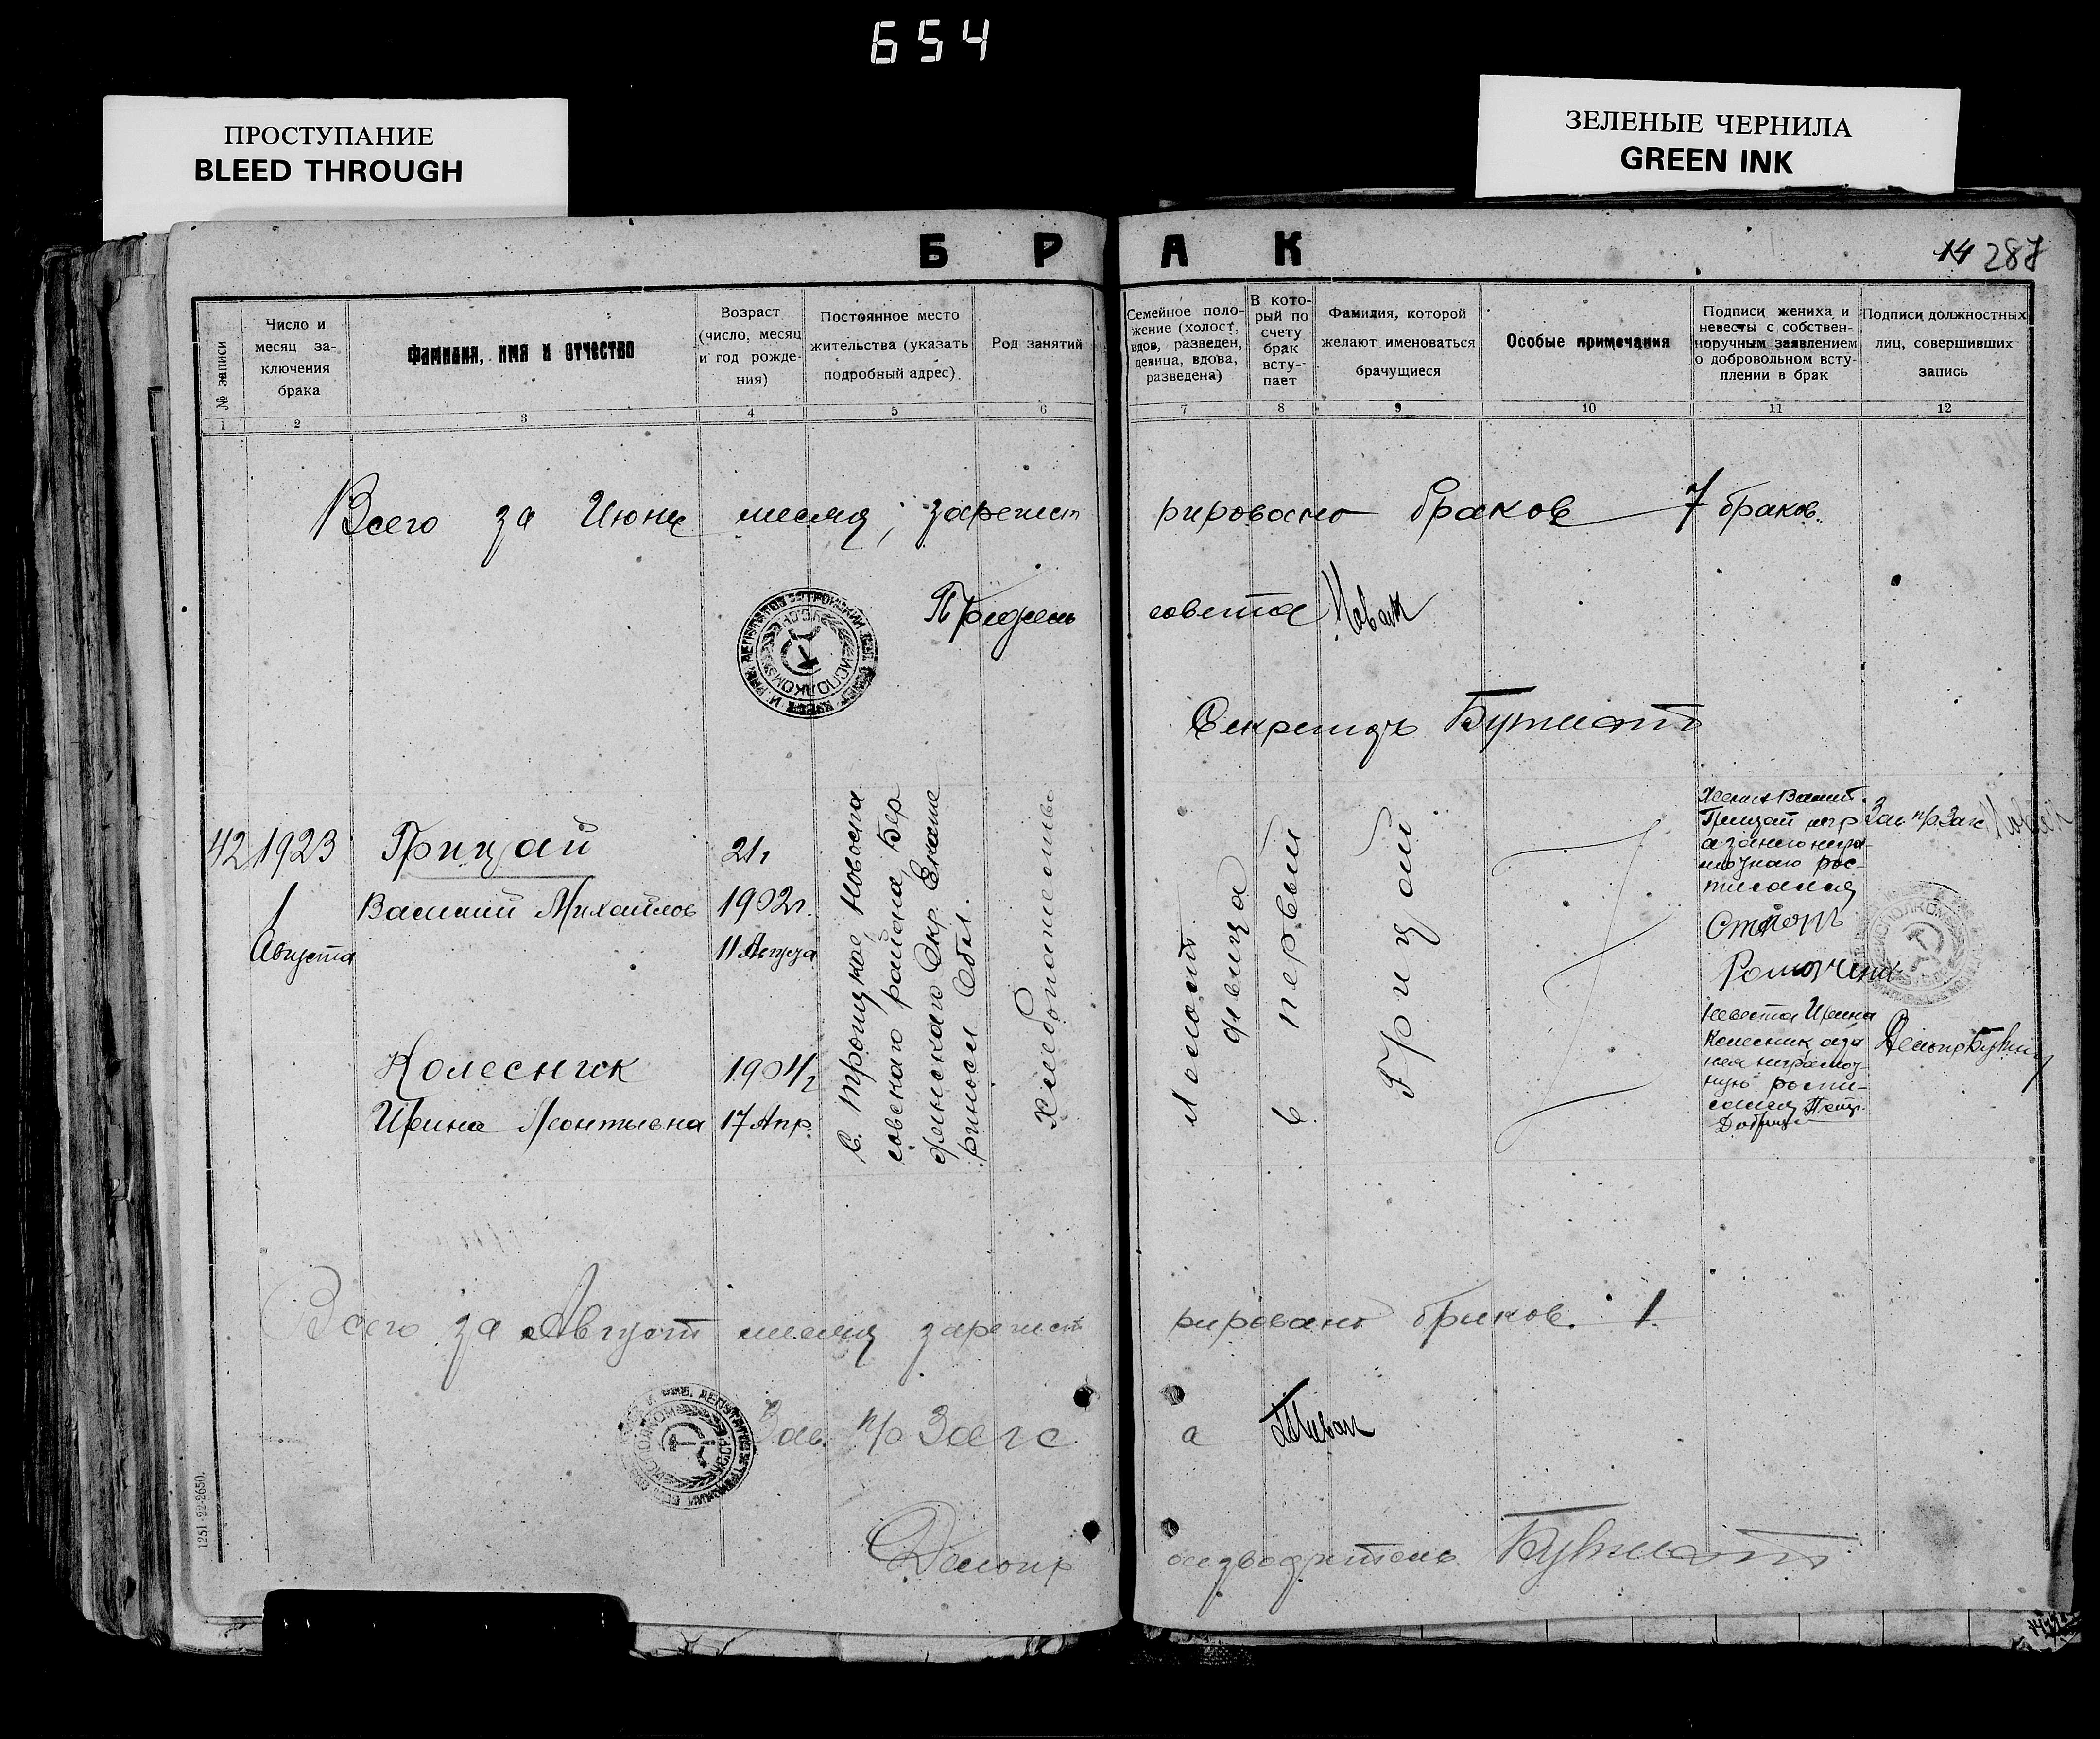 654
ПРОСТУПАНИЕ
BLEED THROUGH
ЗЕЛЕНЫЕ ЧЕРНИЛА
GREEN INK
Б Р А К
14 287
№ записи
Число и
месяц за-
ключения
брака
Фамилия, имя и отчество
Возраст
(число, месяц
и год рожде-
ния)
Постоянное место
жительства (указать
подробный адрес).
Род занятий
Семейное поло-
жение (холост,
вдов, разведен,
девица, вдова,
разведена)
В кото-
рый по
счету
брак
всту-
пает
Фамилия, которой
желают именоваться
брачущиеся
Особые примечания
Подписи жениха и
невесты с собствен-
норучным заявлением
о добровольном всту-
плении в брак
Подписи должностных
лиц, совершивших
запись
1 2 3 4 5 6 7 8 9 10 11 12
Всего за Июнь месяц, зарегист рировано браков 7 браков.
Предсель совета
Секретарь
42 1923
1
Августа
Грицай
Василий Михайлов
21,
1902г.
11 Августа
Колесник
Ирина Леонтьевна
1904г
17 Апр.
с. Троицкое, Новоспа
совского района, Бер
дянского Окр. Екате
риносл. Обл.
Хлебопашество
Холост.
девица
в первый
Грицай
Жених Васил.
Грицай негр
а за него негра-
мотного рос-
писался
Степан
Невеста Ирина
Колесник а за
нея неграмот-
ную роспи-
сался Петр.
Зав. п/о Загс
Делопр
ИСПОЛКОМ
Всего за Август месяц зарегист рировано браков. 1.
Зав. п/о Загс а
Делопр оизводитель
1251-22-2650.